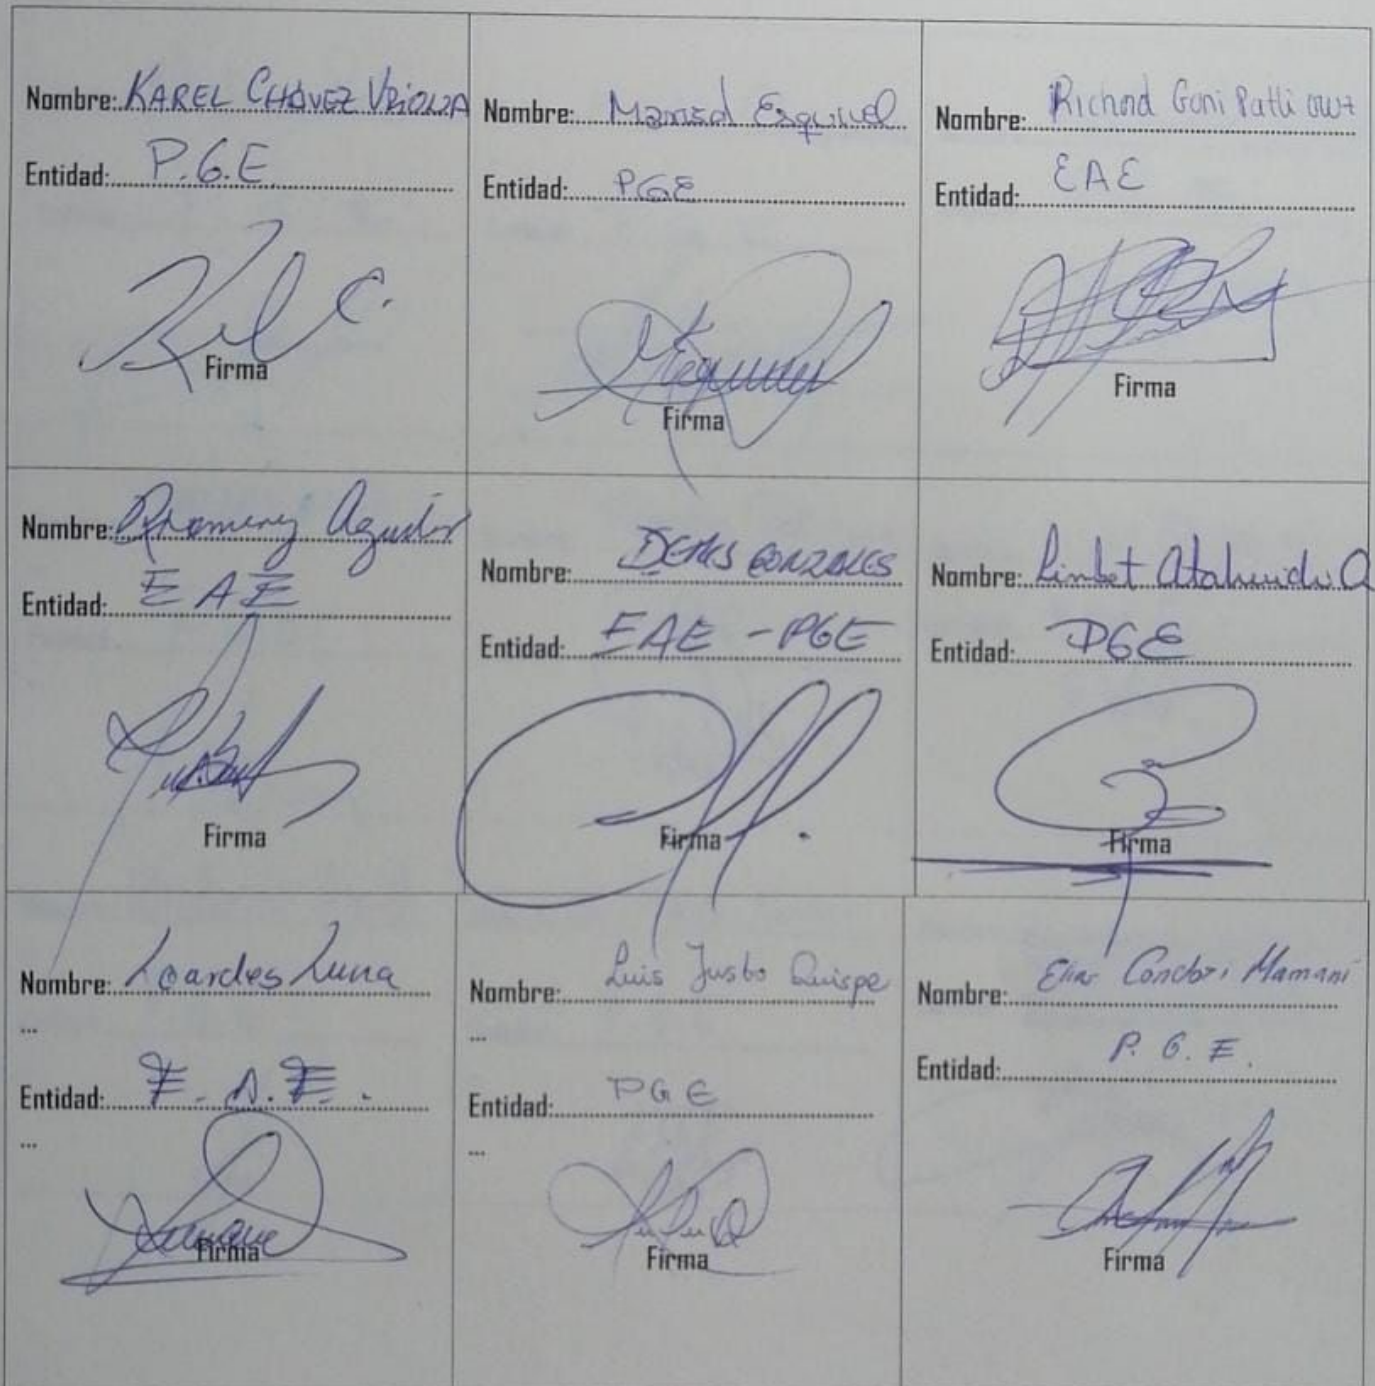 Nombre: KAREL CHÁVEZ URIONA
Entidad: P.G.E
Firma
Nombre: Marisol Esquivel
Entidad: PGE
Firma
Nombre: Richard Goni Patli
Entidad: EAE
Firma
Nombre: Aguilar
Entidad: EAE
Firma
Nombre: DENIS GONZALES
Entidad: EAE - PGE
Firma
Nombre: Limbet
Entidad: PGE
Firma
Nombre: Lourdes Luna
...
Entidad: E. A. E.
...
Firma
Nombre: Luis Justo Quispe
...
Entidad: PGE
...
Firma
Nombre: Elias Condori Mamani
Entidad: P. G. E.
Firma